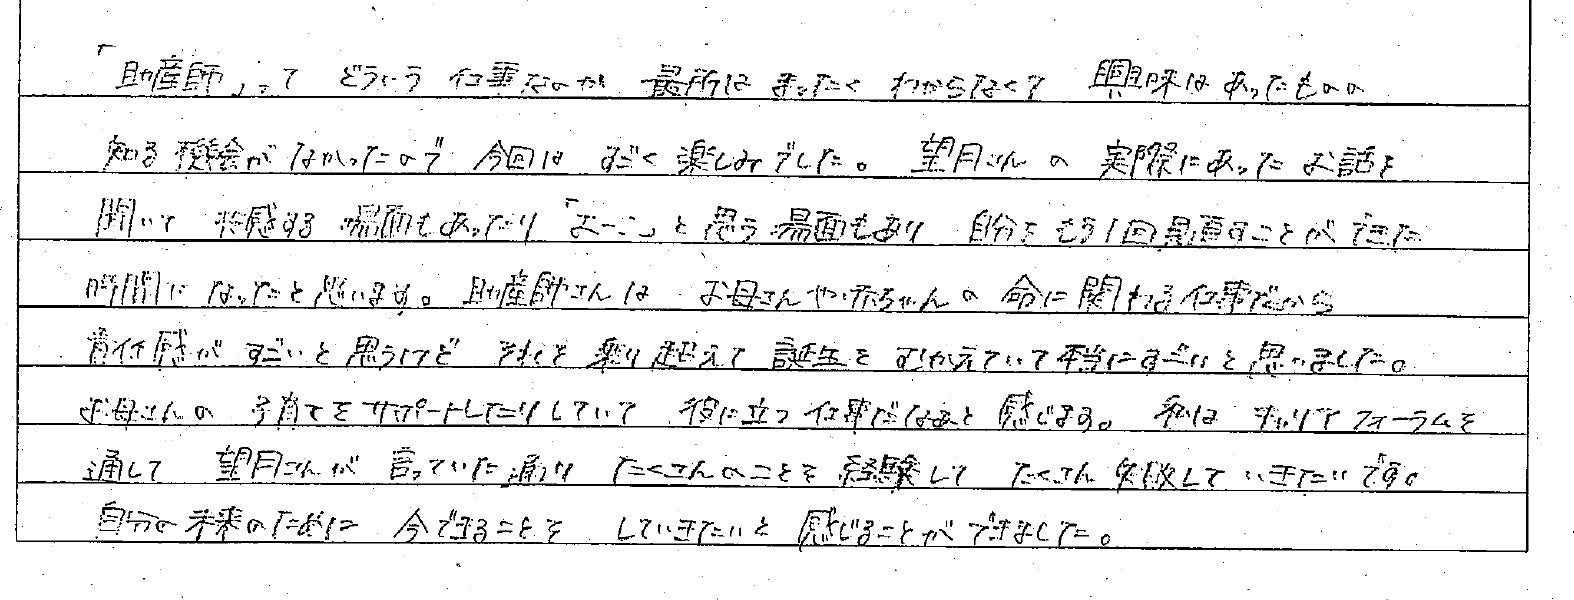 「助産師」って どういう 仕事なのか 最所は まったく わからなくて 興味は あったものの
知る 機会が なかったので 今回は すごく 楽しみでした。 望月さん の 実際にあった お話を
聞いて 共感する 場面も あったり 「おーっ」と 思う 場面もあり 自分を もう1回 見直すことが できた
時間に なったと 思います。 助産師さんは お母さんや赤ちゃんの 命に 関わる 仕事だから
責任感が すごいと 思うけど それを 乗り越えて 誕生を むかえていて 本当に すごいと 思いました。
お母さんの 子育てを サポートしたりしていて 役に立つ 仕事だなぁと 感じます。 私は キャリア フォーラムを
通して 望月さんが 言っていた 通り たくさんのことを 経験して たくさん 失敗して いきたいです。
自分の 未来のために 今できることを していきたいと 感じることが できました。